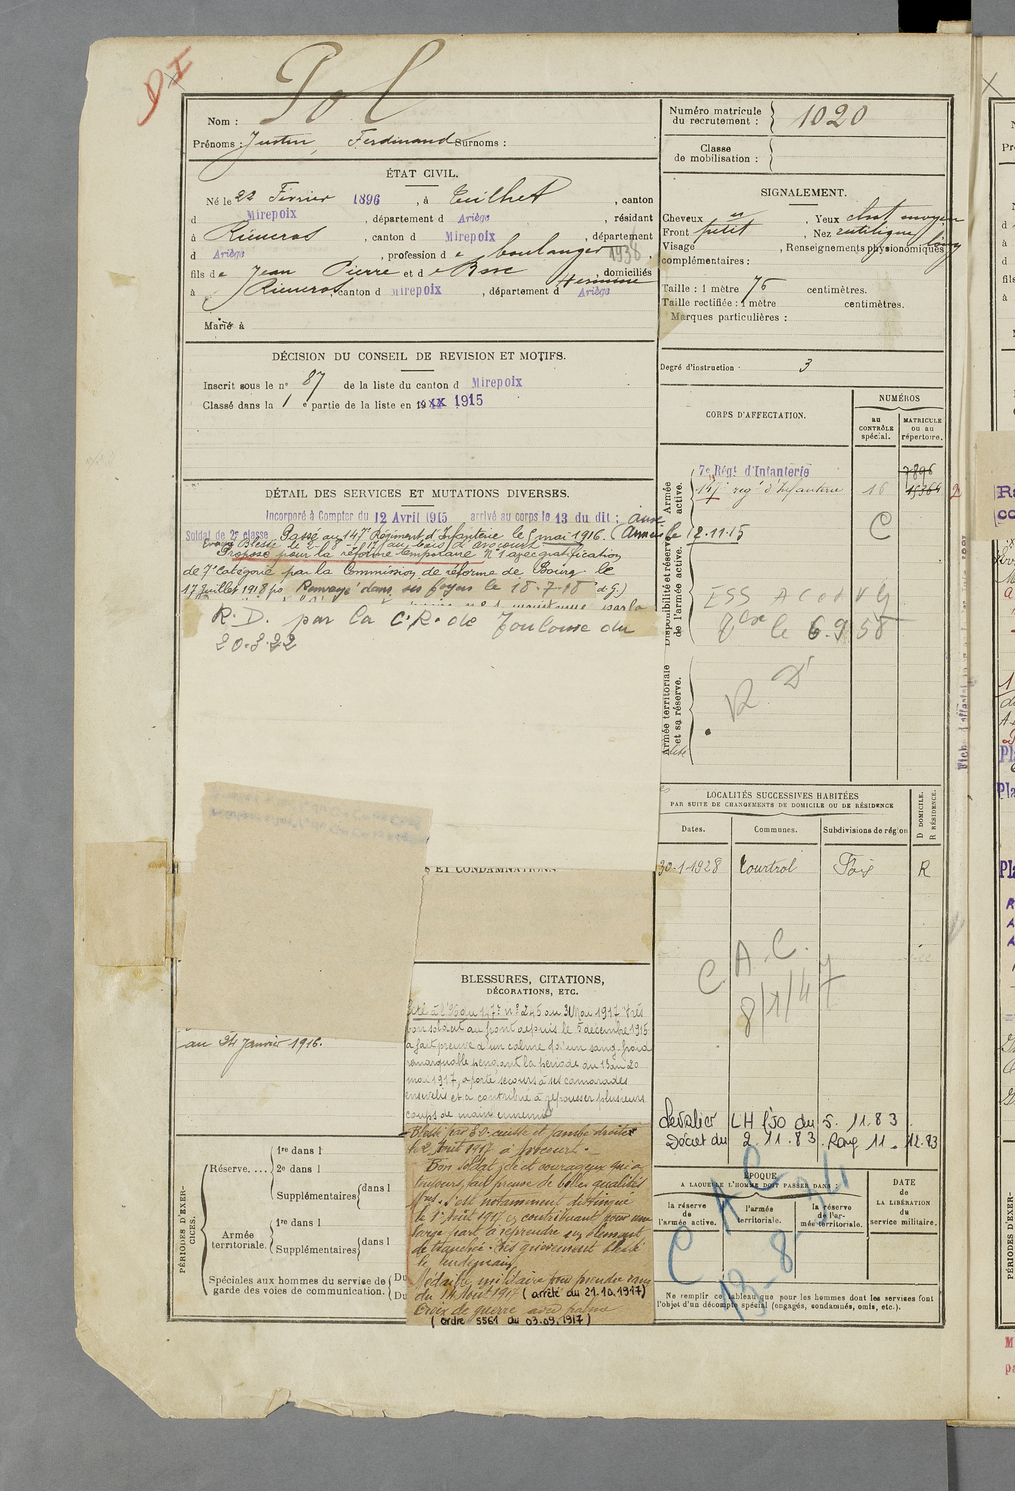 DI
Nom : Pol
Prénoms : Justin, Ferdinand Surnoms :
ÉTAT CIVIL.
Né le 22 Février 1896, à Teilhet, canton
d Mirepoix, département d Ariège, résidant
à Rieucros, canton d Mirepoix, département
d Ariège, profession de boulanger 1938,
fils de Jean Pierre et de Rose Hermine, domiciliés
à Rieucros, canton d Mirepoix, département d Ariège
Marié à
DÉCISION DU CONSEIL DE REVISION ET MOTIFS.
Inscrit sous le n° 87 de la liste du canton d Mirepoix
Classé dans la 1 e partie de la liste en 19xx 1915
DÉTAIL DES SERVICES ET MUTATIONS DIVERSES.
Incorporé à Compter du 12 Avril 1915 arrivé au corps le 13 du dit : aux
Soldat de 2e classe Passé au 147 Régiment d'Infanterie le 5 mai 1916. (Armées le 2.11.15
Proposé pour la réforme temporaire N° 1 avec gratification
de 7e Catégorie par la Commission de réforme de Bourg le
17 Juillet 1918 Renvoyé dans ses foyers le 18-7-18
R.D. par la C.R. de Toulouse du
20.3.22
ET CONDAMNATIONS
au 24 Janvier 1916.
BLESSURES, CITATIONS,
DÉCORATIONS, ETC.
Cité à l'O du 147e n° 245 du 31 Mai 1917 Très
bon soldat au front depuis le 5 décembre 1915
a fait preuve d'un calme d'un sang-froid
remarquable pendant la période du 13 au 20
mai 1917, a porté secours à ses camarades
ensevelis et a contribué à repousser plusieurs
coups de mains ennemis
Blessé par E.O. cuisse et jambe droites
le 2 Août 1917 à
Bon soldat zélé et courageux qui a
toujours fait preuve de belles qualités
s'est notamment distingué
le 1er Août 1917 en contribuant pour une
large part à reprendre un élément
de tranchée. Très grièvement blessé
le lendemain
Médaille militaire pour prendre rang
du 14 Août 1917 (arrêté du 21.10.1917)
Croix de guerre avec palme
(ordre 5561 du 03.09.1917)
PÉRIODES D'EXERCICES.
Réserve....
1re dans l
2e dans l
Supplémentaires dans l
Armée territoriale.
1re dans l
Supplémentaires dans l
Spéciales aux hommes du service de garde des voies de communication.
Du
Du
Numéro matricule du recrutement : 1020
Classe de mobilisation :
SIGNALEMENT.
Cheveux Yeux chat moyen
Front petit, Nez rectiligne
Visage long, Renseignements physionomiques
complémentaires :
Taille : 1 mètre 75 centimètres.
Taille rectifiée : 1 mètre centimètres.
Marques particulières :
Degré d'instruction : 3
CORPS D'AFFECTATION.
NUMÉROS
au CONTRÔLE spécial.
MATRICULE ou au répertoire.
Armée active.
7e Régt d'Infanterie
7896
147e régt d'Infanterie 16
C
Disponibilité et réserve de l'armée active.
le 6.9.58
Armée territoriale et sa réserve.
R D
LOCALITÉS SUCCESSIVES HABITÉES
PAR SUITE DE CHANGEMENTS DE DOMICILE OU DE RÉSIDENCE
Dates. Communes. Subdivisions de région D DOMICILE. R RÉSIDENCE.
30-1-1928 Tourtrol Foix R
C.A.C.
8/1/47
Chevalier LH J50 du 5.11.83
Décret du 2.11.83. Rang 11.12.83
ÉPOQUE
A LAQUELLE L'HOMME DOIT PASSER DANS :
la réserve de l'armée active.
l'armée territoriale.
la réserve de l'armée territoriale.
DATE de LA LIBÉRATION du service militaire.
CAC
13-8-34
Ne remplir ce tableau que pour les hommes dont les services font
l'objet d'un décompte spécial (engagés, condamnés, omis, etc.).